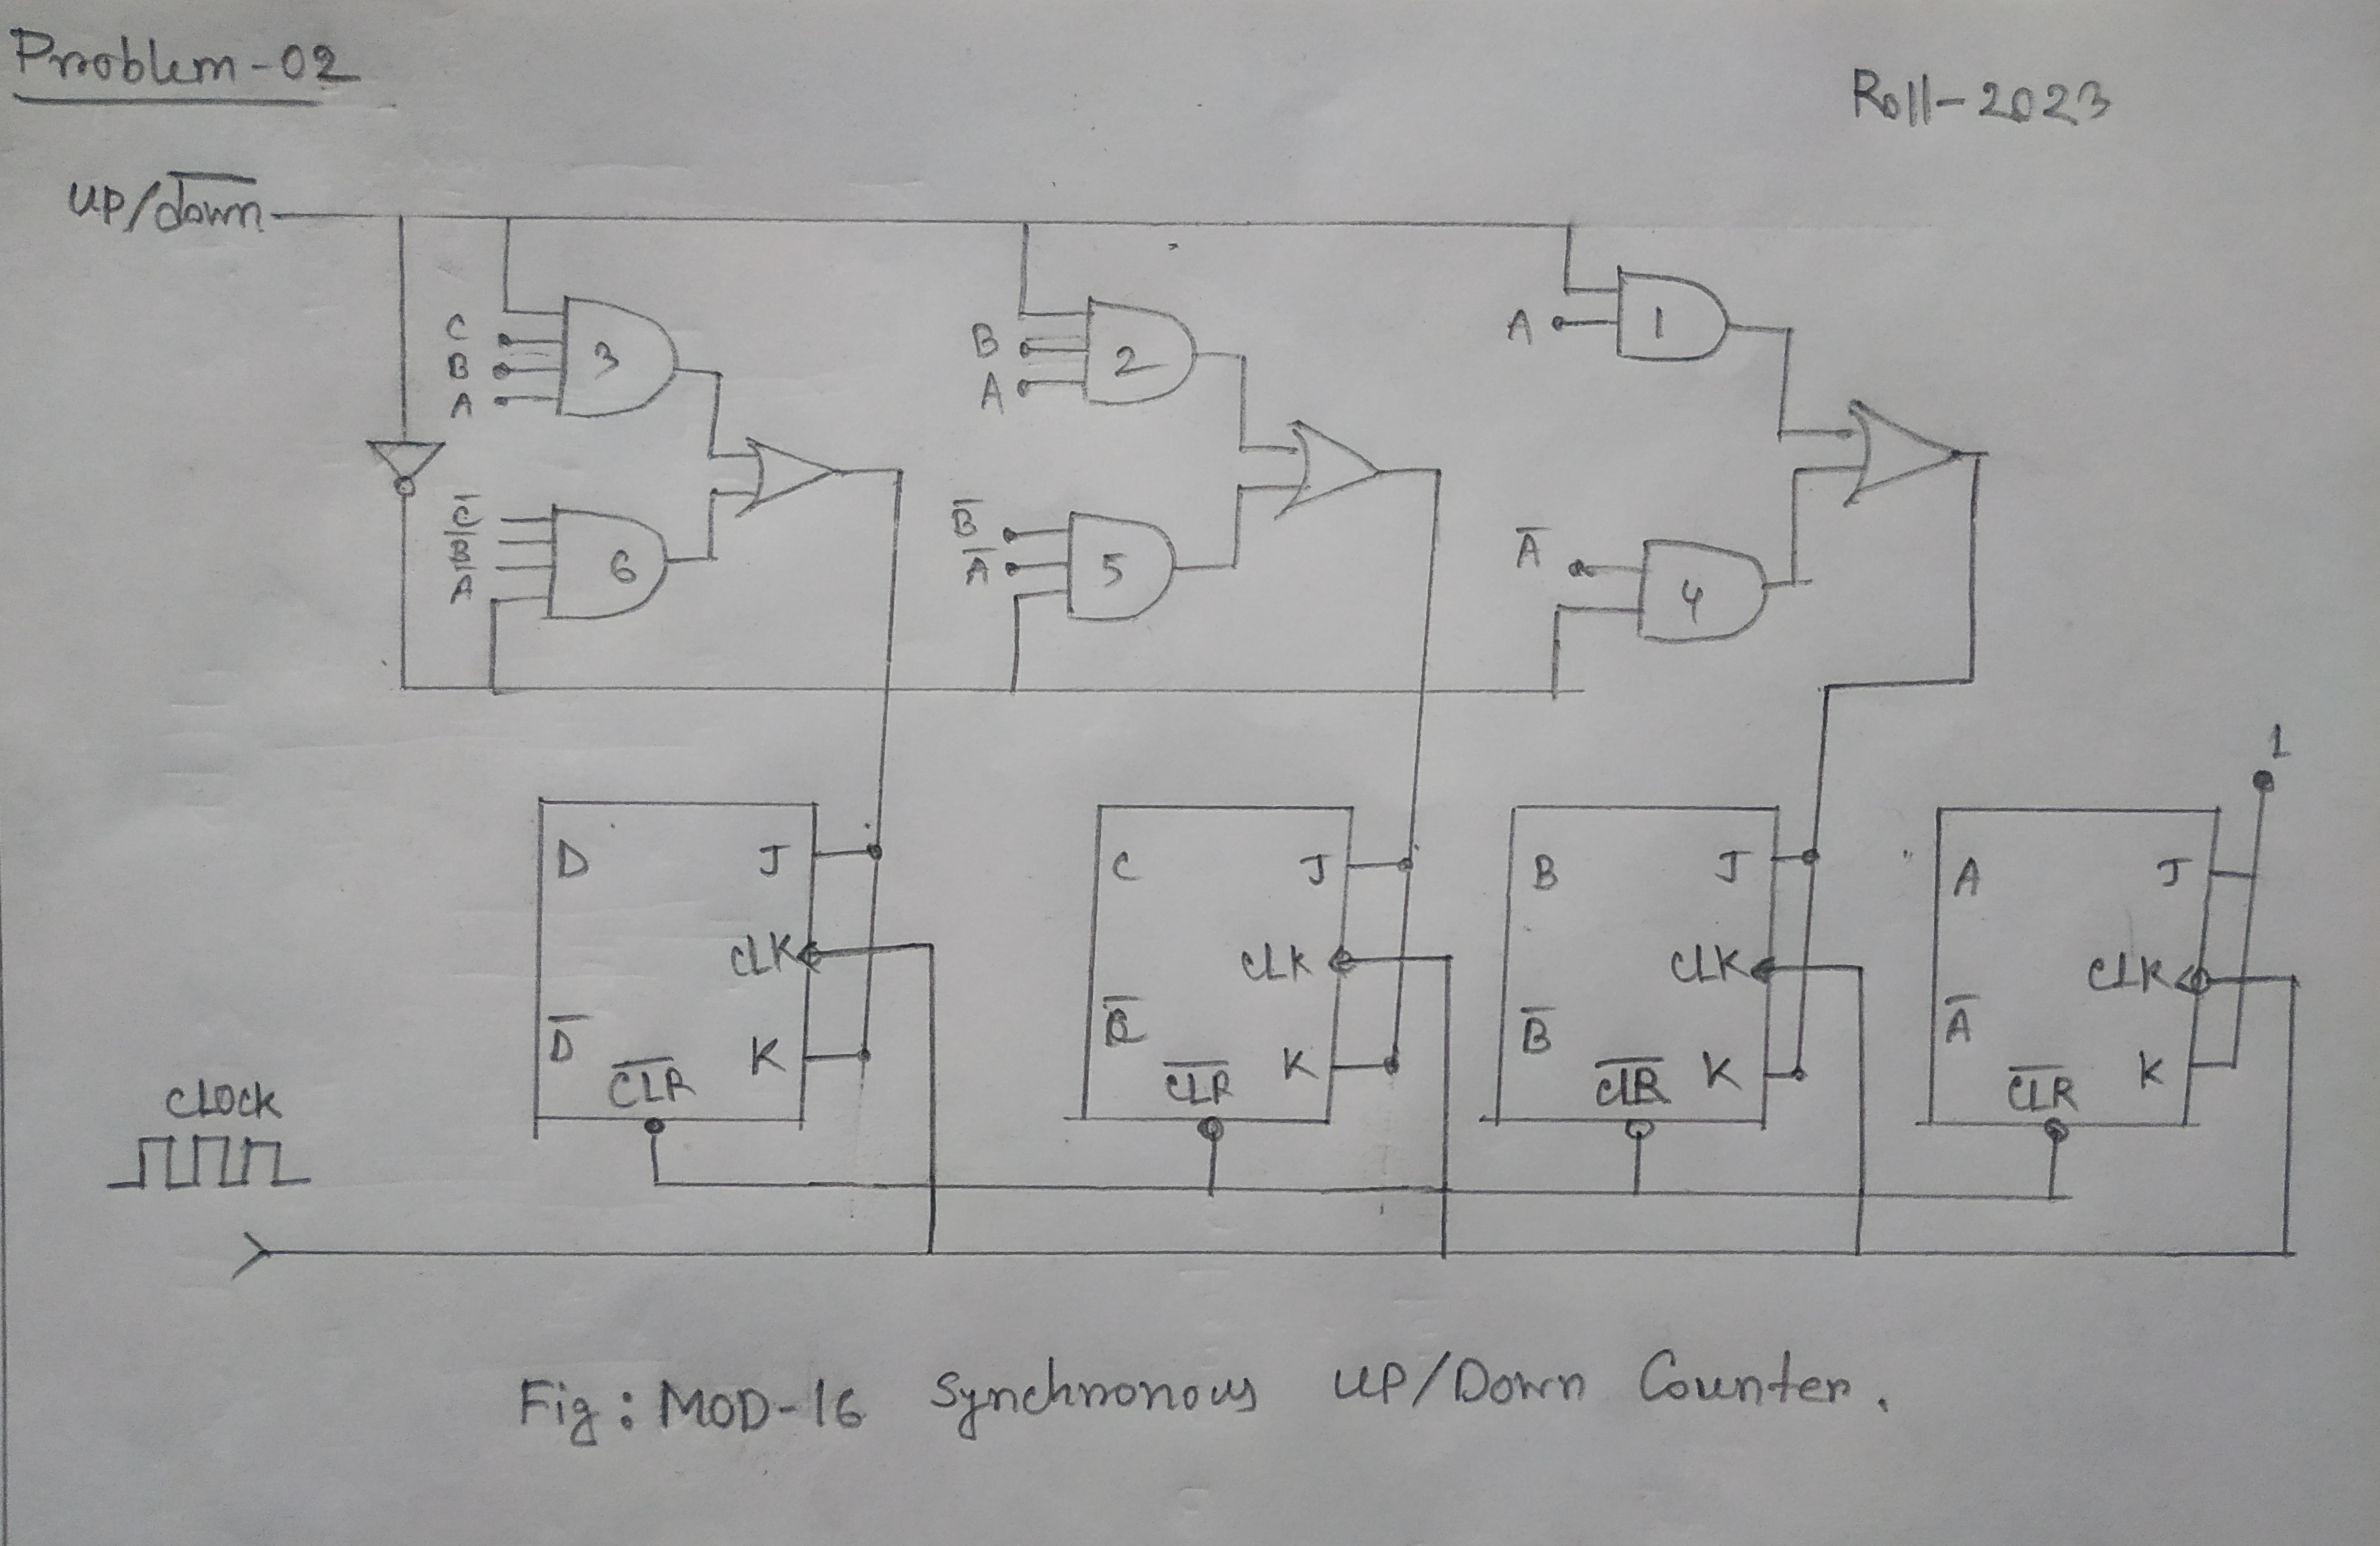 Problem-02
Roll-2023
UP/d̅o̅w̅n̅
C
B
A
3
B
A
2
A
1
C̅
B̅
A̅
6
B̅
A̅
5
A̅
4
1
D
J
CLK
D̅
K
C̅L̅R̅
C
J
CLK
C̅
K
C̅L̅R̅
B
J
CLK
B̅
K
C̅L̅R̅
A
J
CLK
A̅
K
C̅L̅R̅
CLOCK
Fig: MOD-16 Synchronous UP/Down Counter.